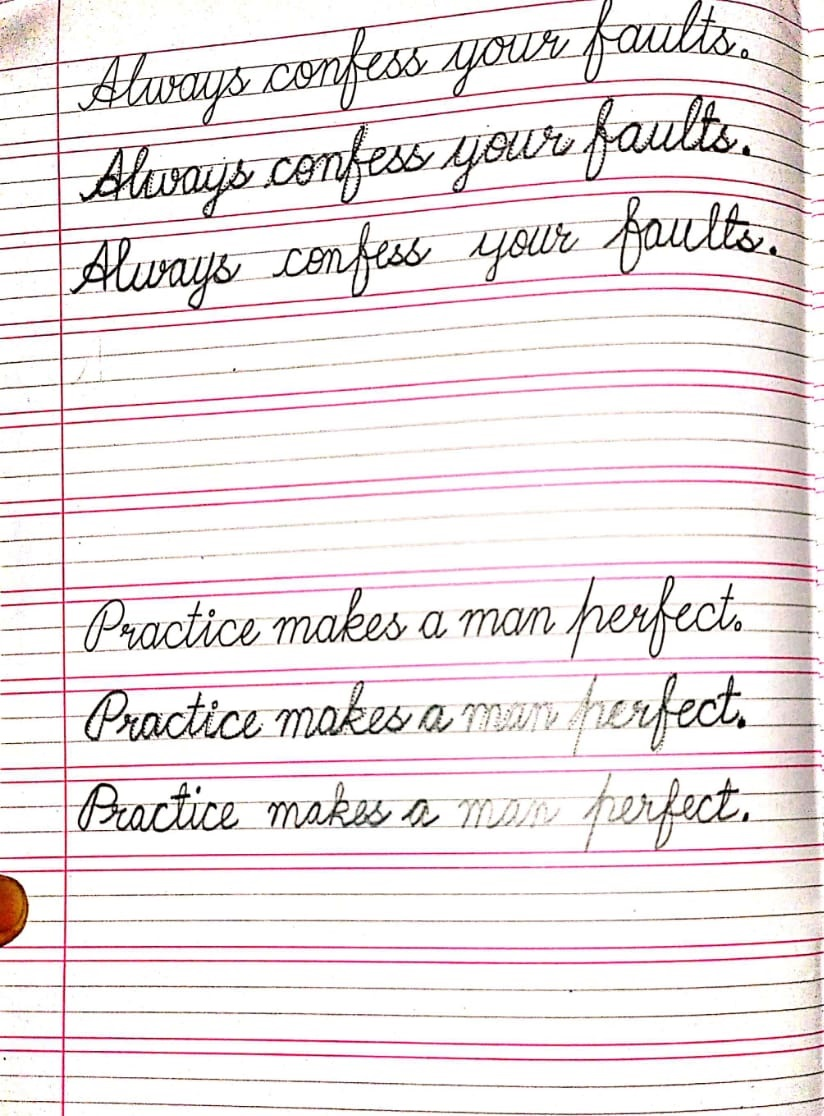 Always confess your faults.
Always confess your faults.
Always confess your faults.
Practice makes a man perfect.
Practice makes a man perfect.
Practice makes a man perfect.